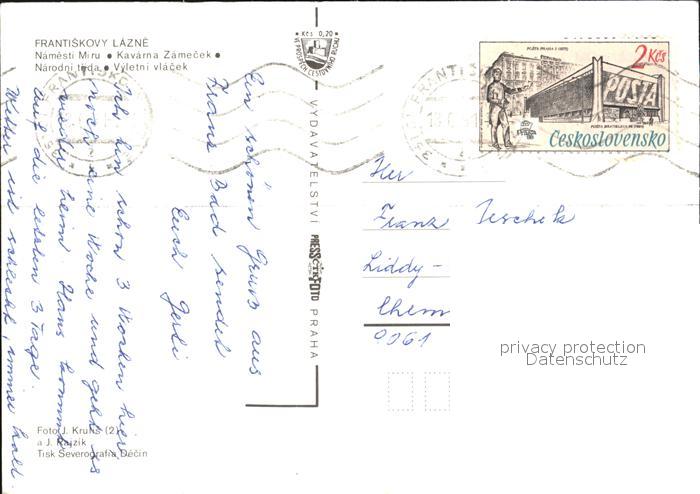 FRANTIŠKOVY LÁZNĚ
Náměstí Míru • Kavárna Zámeček •
Národní třída • Výletní vláček
Kčs 0,20
VE PROSPĚCH CESTOVNÍHO RUCHU
Ein schönen Gruss aus
Franz Bad sendet
Euch Gerli
Ich bin schon 3 Wochen hier
noch eine Woche und geht es
wieder heim. Hans kommt
auf die letzten 3 Tage.
Wetter ist schlecht, immer kalt.
Foto J. Krufis (2)
a J. Rajzík
Tisk Severografia Děčín
VYDAVATELSTVÍ PRESSFOTO PRAHA
FRANTIŠKOVY
2 Kčs
POŠTA
Československo
Her
Franz Jeschek
Liddy-
Chem
9061
privacy protection
Datenschutz